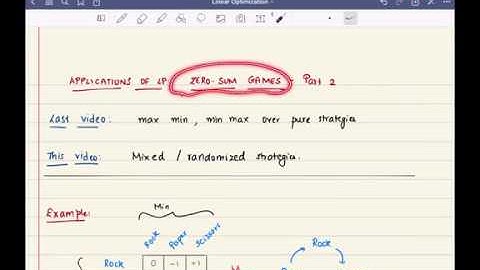 Linear Optimization
APPLICATIONS OF LP: ZERO-SUM GAMES - Part 2
Last video: max min, min max over pure strategies
This video: Mixed / randomized strategies.
Example: Min
Rock Paper Scissors
Rock 0 -1 +1
Rock